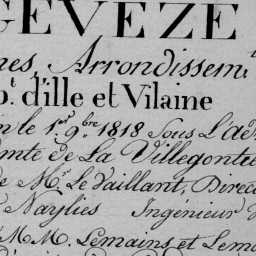 GEVEZE
nes, Arrondissem.t
p.t d'ille et Vilaine
le 1.er 9.bre 1818 Sous L'ad
omte de La Villegonti
e M.r Le Vaillant, Direc
Naylies Ingénieur
MM. Lemains, et Lem